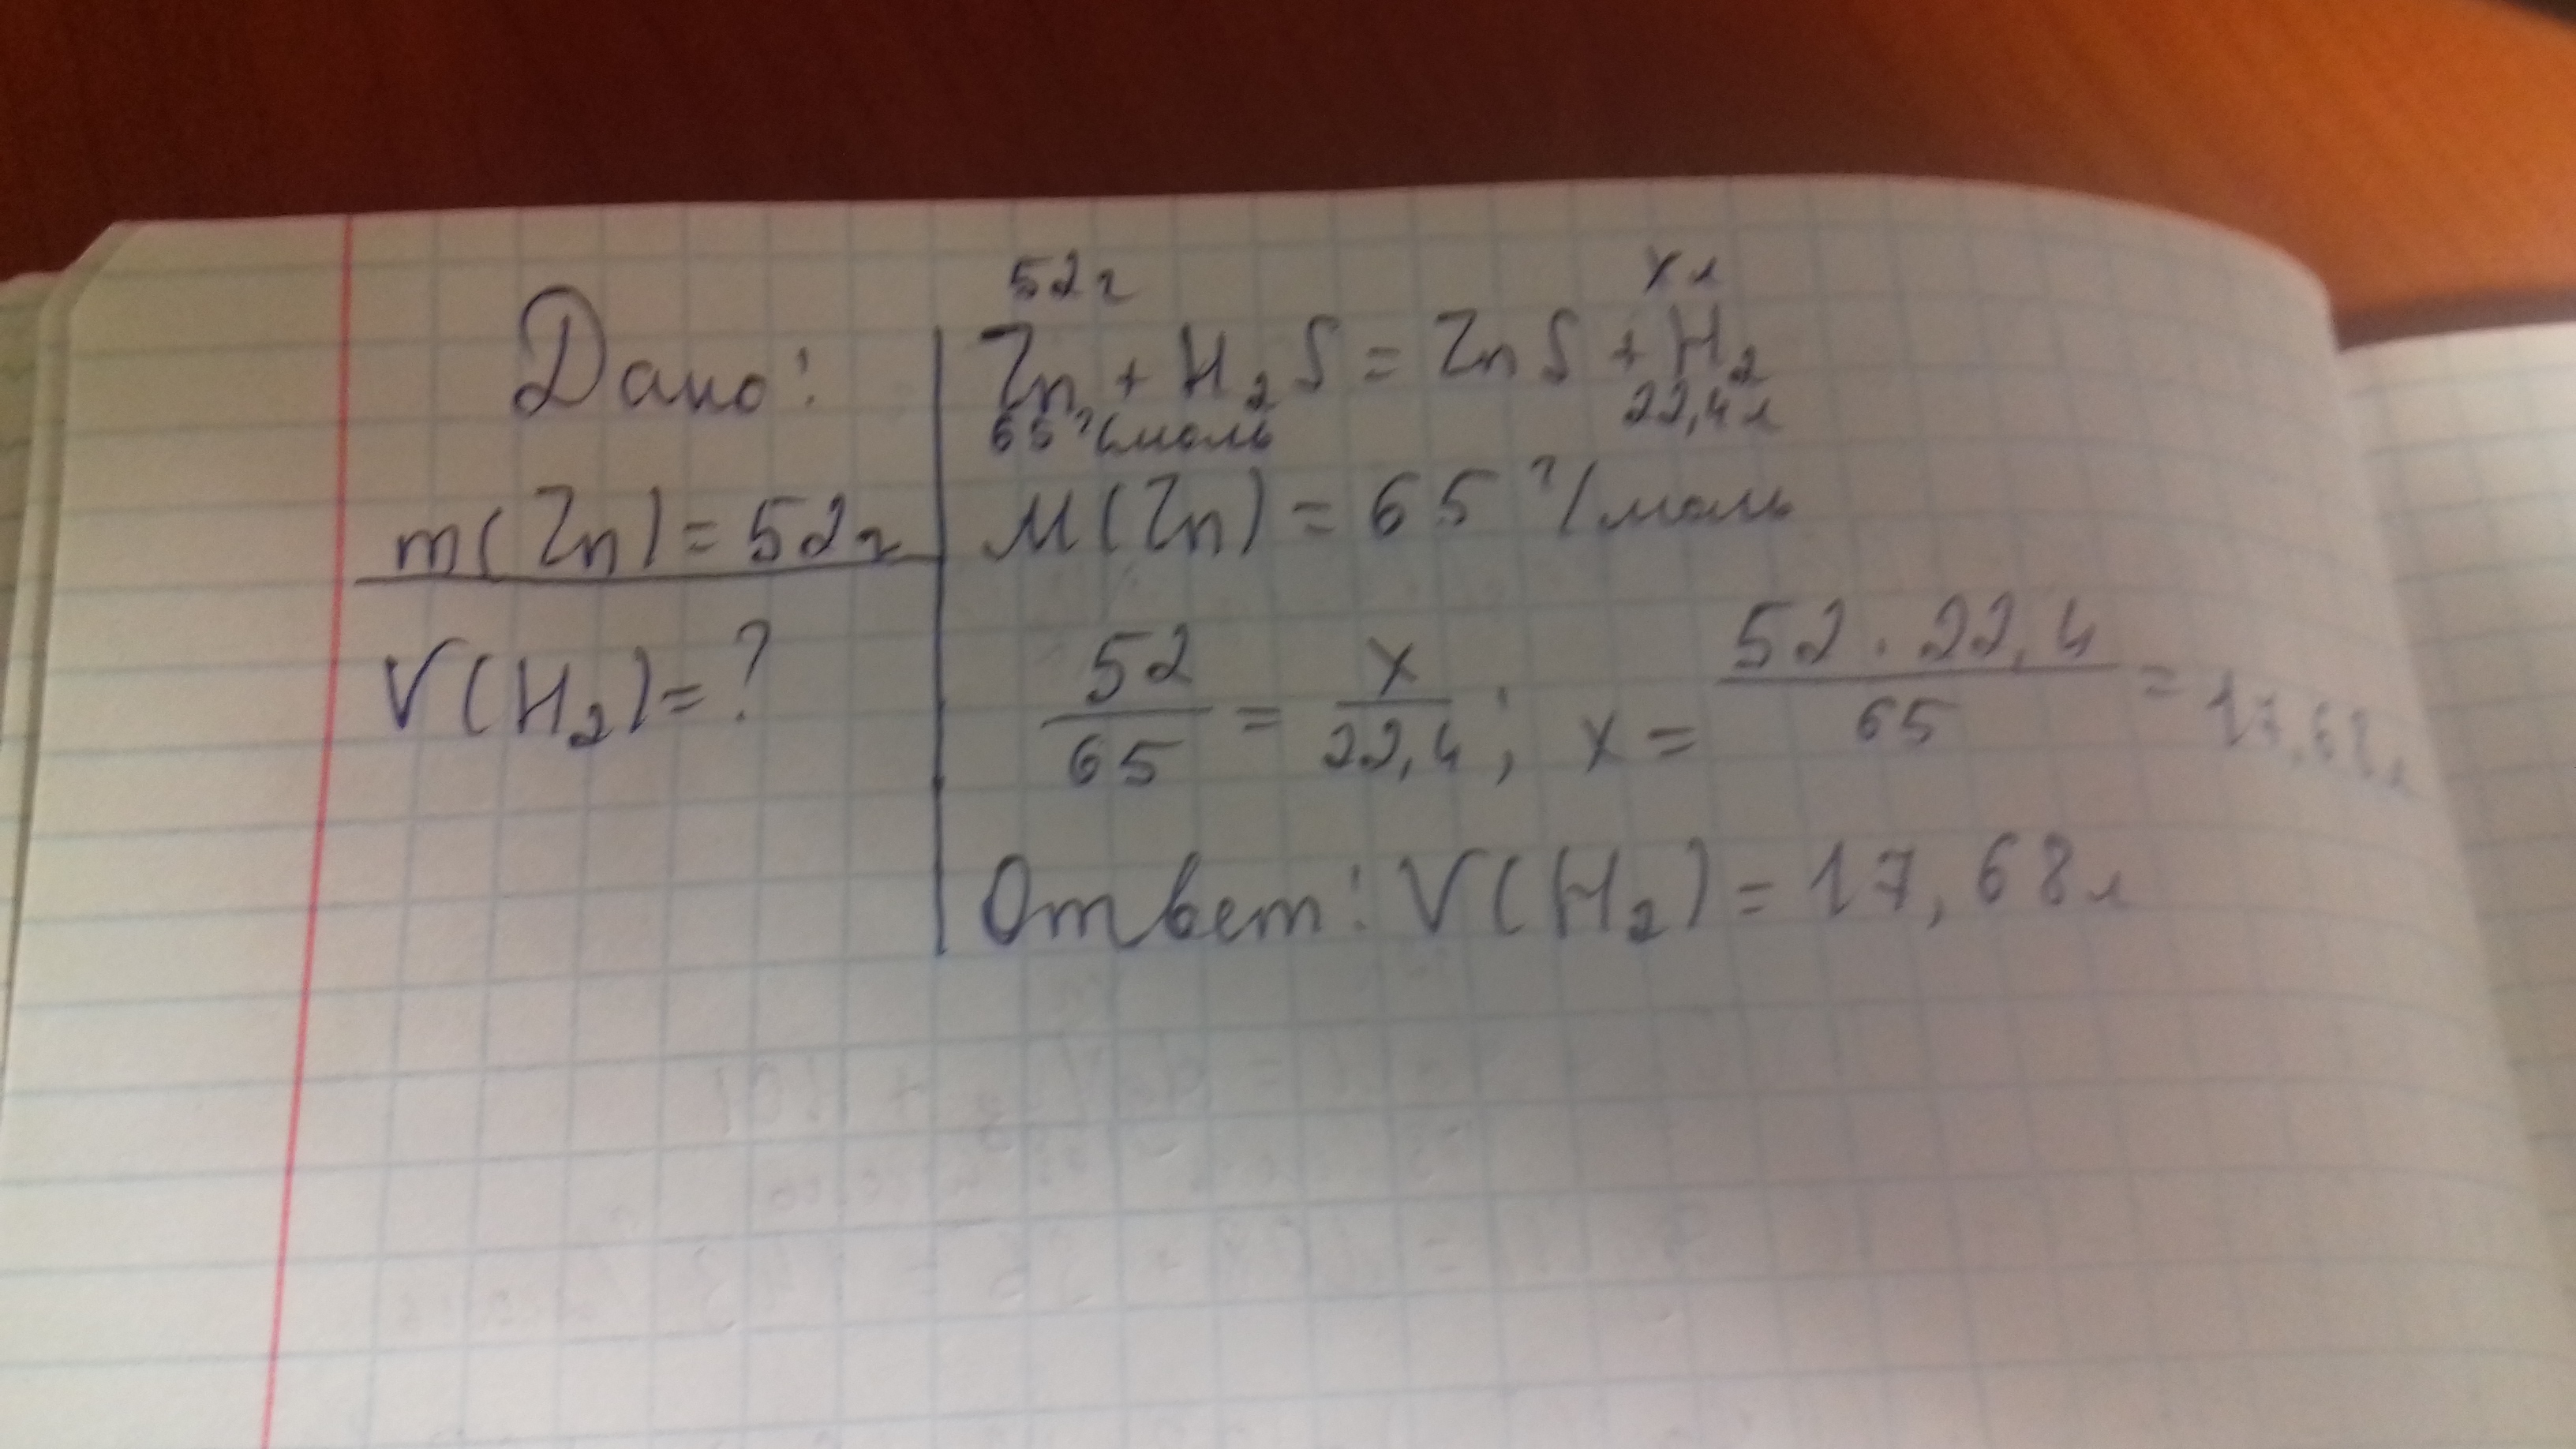 Дано:
m(Zn)=52г
V(H₂)=?
52г xл
Zn + H₂S = ZnS + H₂
65г/моль 22,4л
M(Zn) = 65 г/моль
52/65 = x/22,4; x = 52·22,4/65 = 17,68л
Ответ: V(H₂)=17,68л